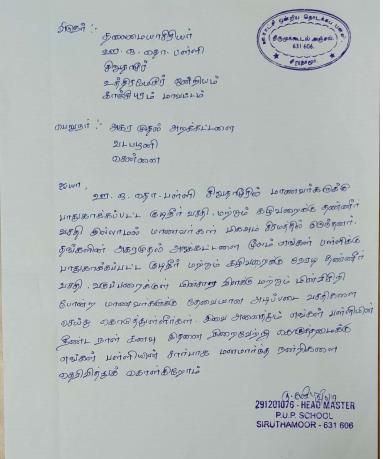 அனுப்புநர் :-
தலைமையாசிரியர்
ஊ. ஒ. தொ. பள்ளி
சிறுதாமூர்
உத்திரமேரூர் ஒன்றியம்
காஞ்சிபுரம் மாவட்டம்
ஊராட்சி ஒன்றிய தொடக்கப் பள்ளி
திருமுக்கூடல் அஞ்சல்,
631 606.
சிறுதாமூர்
பெறுநர் :- அகரமுதல் அறக்கட்டளை
வடபழனி
சென்னை
ஐயா, ஊ. ஒ. தொ. பள்ளி சிறுதாமூரில் மாணவர்களுக்கு
பாதுகாக்கப்பட்ட குடிநீர் வசதி மற்றும் கழிவறைக்கு தண்ணீர்
வசதி இல்லாமல் மாணவர்கள் மிகவும் சிரமத்தில் இருந்தனர்.
தங்களின் அகரமுதல் அறக்கட்டளை மூலம் எங்கள் பள்ளிக்கு
பாதுகாக்கப்பட்ட குடிநீர் மற்றும் கழிவறைக்கு தண்ணீர்
வசதி, வகுப்பறைக்கு மின்சார விளக்கு மற்றும் மின்விசிறி
போன்ற மாணவர்களுக்கு தேவையான அடிப்படை வசதிகளை
செய்து கொடுத்துள்ளீர்கள். இவை அனைத்தும் எங்கள் பள்ளியின்
நீண்ட நாள் கனவு இதனை நிறைவேற்றி கொடுத்தமைக்கு
எங்கள் பள்ளியின் சார்பாக மனமார்ந்த நன்றிகளை
தெரிவித்துக் கொள்கிறோம்
291201076 - HEAD MASTER
P.U.P. SCHOOL
SIRUTHAMOOR - 631 606